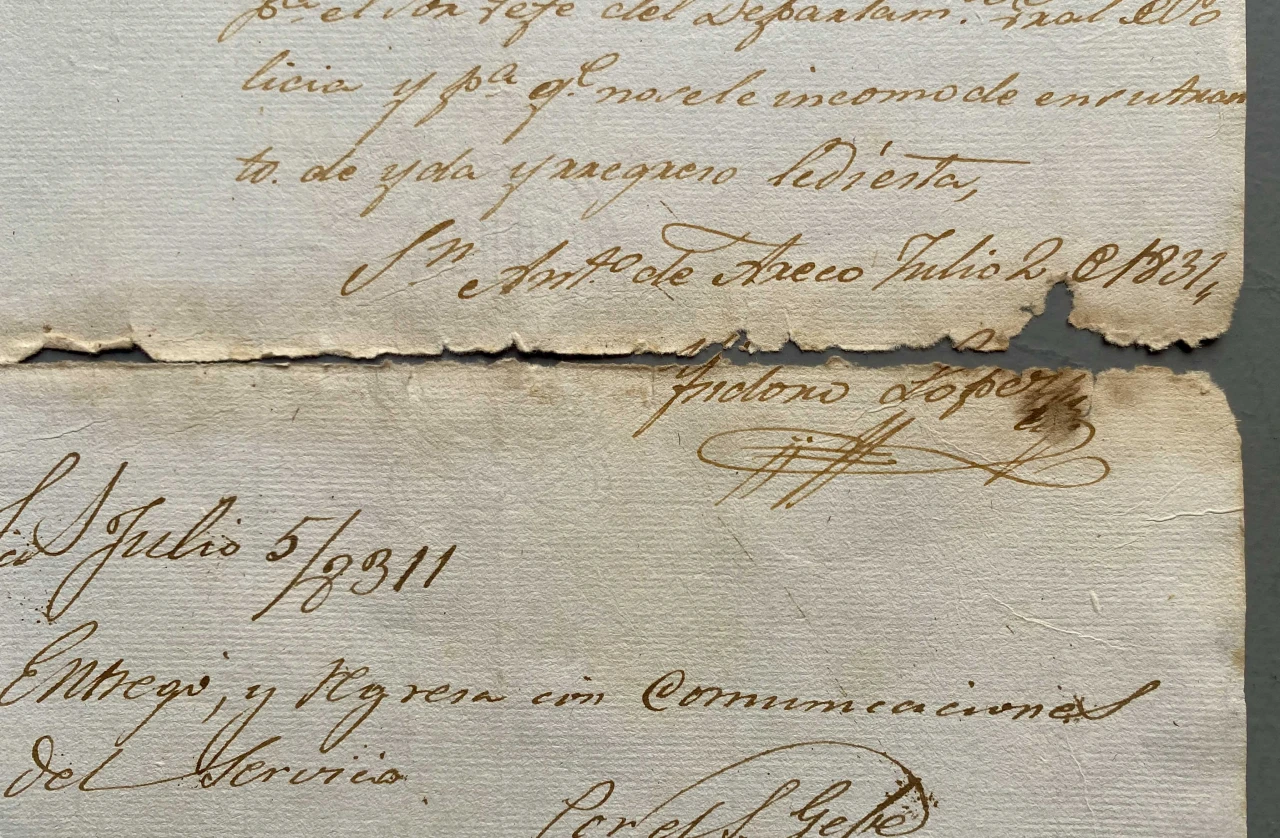 pª. el Sor Jefe del Departamto. Gral de Po
licia y pª qe. no se le incomode en su tran
to. de yda y rregreso le di esta,
Sn Anto. de Areco Julio 2 de 1831,,
Ysidoro Lopez
S S Julio 5/8311
Entregó, y regresa con Comunicaciones
del Servicio
Por el S. Gefe